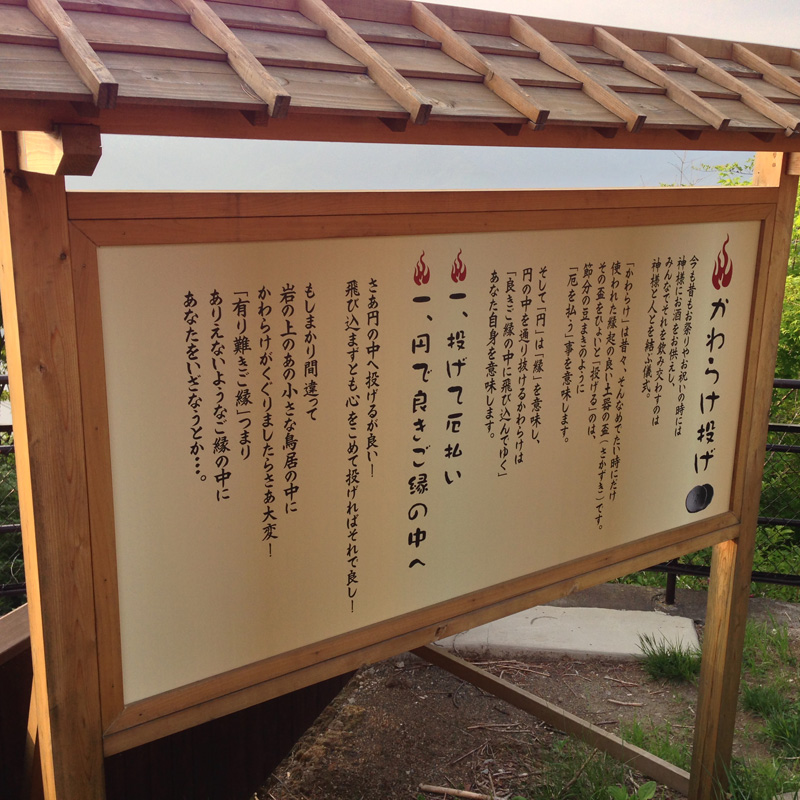 かわらけ投げ
今も昔もお祭りやお祝いの時には
神様にお酒をお供えし、
みんなでそれを飲み交わすのは
神様と人とを結ぶ儀式。
「かわらけ」は昔々、そんなめでたい時にだけ
使われた縁起の良い土器の盃(さかずき)です。
その盃をひょいと「投げる」のは、
節分の豆まきのように
「厄を払う」事を意味します。
そして「円」は「縁」を意味し、
円の中を通り抜けるかわらけは
「良きご縁の中に飛び込んでゆく」
あなた自身を意味します。
一、投げて厄払い
一、円で良きご縁の中へ
さあ円の中へ投げるが良い!
飛び込まずとも心をこめて投げればそれで良し!
もしまかり間違って
岩の上のあの小さな鳥居の中に
かわらけがくぐりましたらさあ大変!
「有り難きご縁」つまり
ありえないようなご縁の中に
あなたをいざなうとか・・・。